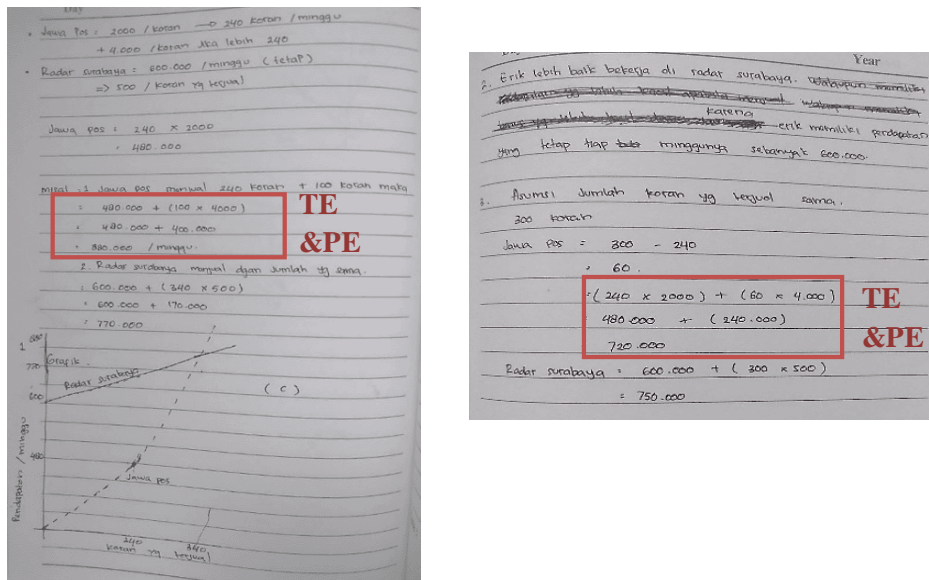 Day
• Jawa Pos : 2000 / koran → 240 koran / minggu
+ 4.000 / koran jika lebih 240
• Radar surabaya = 600.000 / minggu ( tetap )
=> 500 / koran yg terjual
Jawa pos = 240 x 2000
= 480.000
misal : 1 Jawa pos menjual 240 koran + 100 koran maka
= 480.000 + (100 x 4000)
= 480.000 + 400.000
= 880.000 / minggu.
TE
&PE
2. Radar surabaya menjual dgan jumlah yg sama.
: 600.000 + (340 x 500)
= 600.000 + 170.000
= 770.000
1 880
770
Grafik.
Radar surabaya
( c )
600
480
Jawa pos
Pendapatan / minggu
240
340
koran yg terjual
Year
2. Erik lebih baik bekerja di radar surabaya.
karena
erik memiliki pendapatan
yang tetap tiap minggunya sebanyak 600.000.
3. Asumsi jumlah koran yg terjual sama.
300 koran
Jawa pos = 300 - 240
= 60.
=(240 x 2000) + (60 x 4.000)
480.000 + (240.000)
720.000
TE
&PE
Radar surabaya = 600.000 + ( 300 x 500)
= 750.000